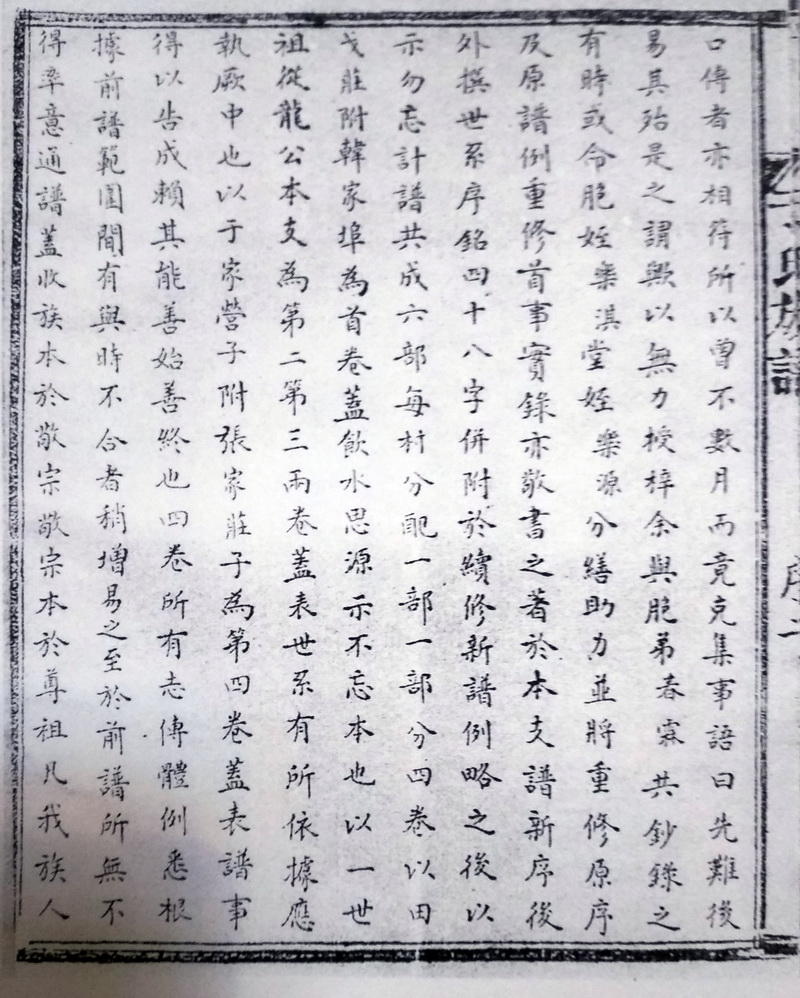 氏族譜
序
口傳者亦相符所以曾不數月而竟克集事語曰先難後
易其殆是之謂歟以無力授梓余與胞弟春霖共鈔錄之
有時或命胞姪樂淇堂姪樂源分繕助力並將重修原序
及原譜例重修首事實錄亦敬書之著於本支譜新序後
外撰世系序銘四十八字併附於續修新譜例略之後以
示勿忘計譜共成六部每村分配一部一部分四卷以田
戈莊附韓家埠為首卷蓋飲水思源示不忘本也以一世
祖從龍公本支為第二第三兩卷蓋表世系有所依據應
執厥中也以于家營子附張家莊子為第四卷蓋表譜事
得以告成賴其能善始善終也四卷所有志傳體例悉根
據前譜範圍間有與時不合者稍增易之至於前譜所無不
得率意通譜蓋收族本於敬宗敬宗本於尊祖凡我族人